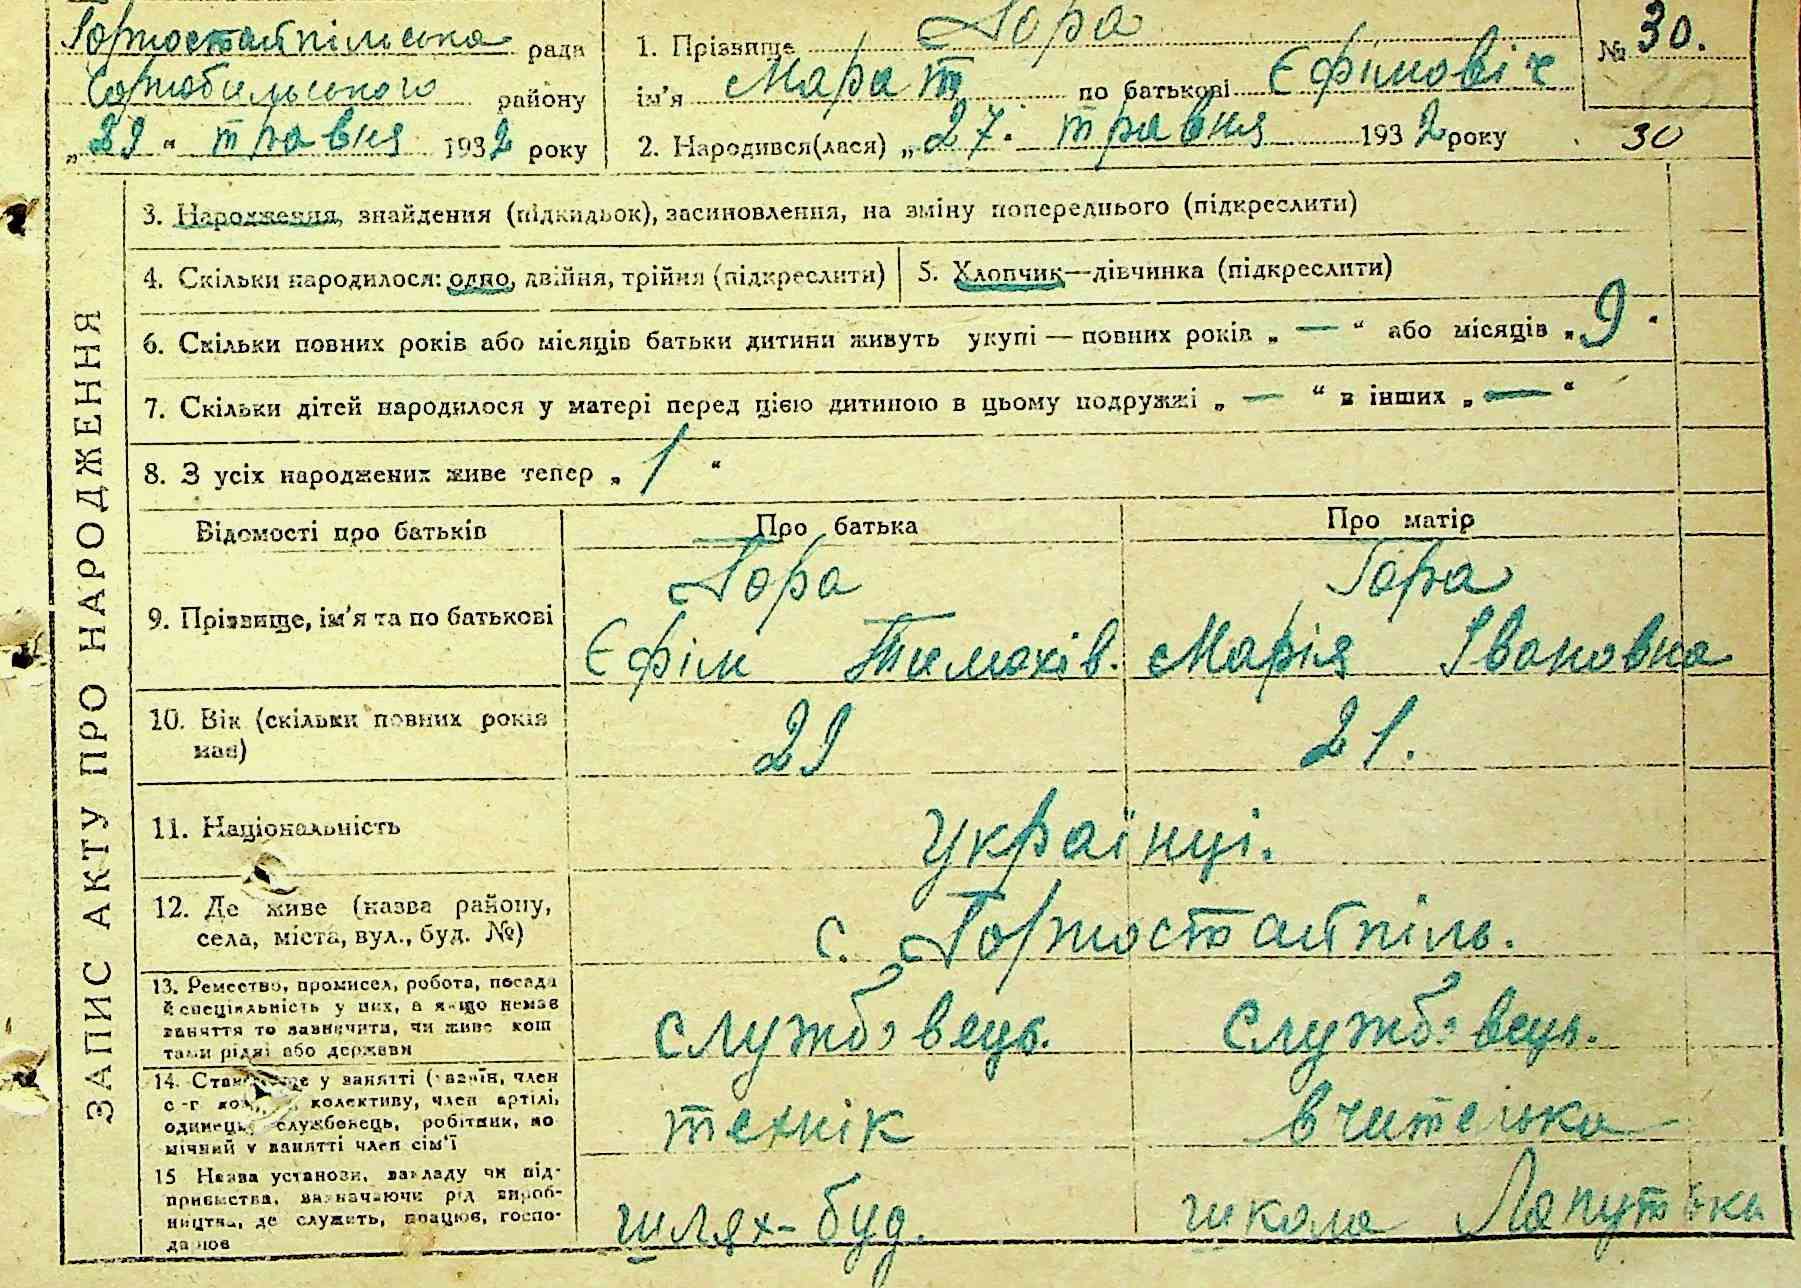 Горностайпільська рада
Чорнобильського району
„29“ травня 1932 року
1. Прізвище Гора
ім’я Марат по батькові Єфимовіч
№ 30.
2. Народився(лася) „27. травня 1932 року
30
ЗАПИС АКТУ ПРО НАРОДЖЕННЯ
3. Народження, знайдення (підкидьок), засиновлення, на зміну попереднього (підкреслити)
4. Скільки народилося: одно, двійня, трійня (підкреслити)
5. Хлопчик—дівчинка (підкреслити)
6. Скільки повних років або місяців батьки дитини живуть укупі — повних років „—“ або місяців „9“
7. Скільки дітей народилося у матері перед цією дитиною в цьому подружжі „—“ в інших „—“
8. З усіх народжених живе тепер „1“
Відомості про батьків Про батька Про матір
9. Прізвище, ім’я та по батькові
Гора Гора
Єфім Тимохів. Марія Івановна
10. Вік (скільки повних років має)
29 21.
11. Національність
Українці.
12. Де живе (назва району,
села, міста, вул., буд. №)
с. Горностайпіль.
13. Ремество, промисел, робота, посада
й спеціяльність у них, а якщо немає
заняття то зазначити, чи живе кош
тами рідні або держави
службовець. службовець.
14. Становище у занятті (хазяїн, член
с.-г. колективу, член артілі,
одинець, службовець, робітник, по
мічний у занятті член сім’ї
технік вчителька
15 Назва установи, закладу чи під-
приємства, зазначаючи рід вироб-
ництва, де служить, працює, госпо-
дарює
шлях-буд. школа Лапутьки